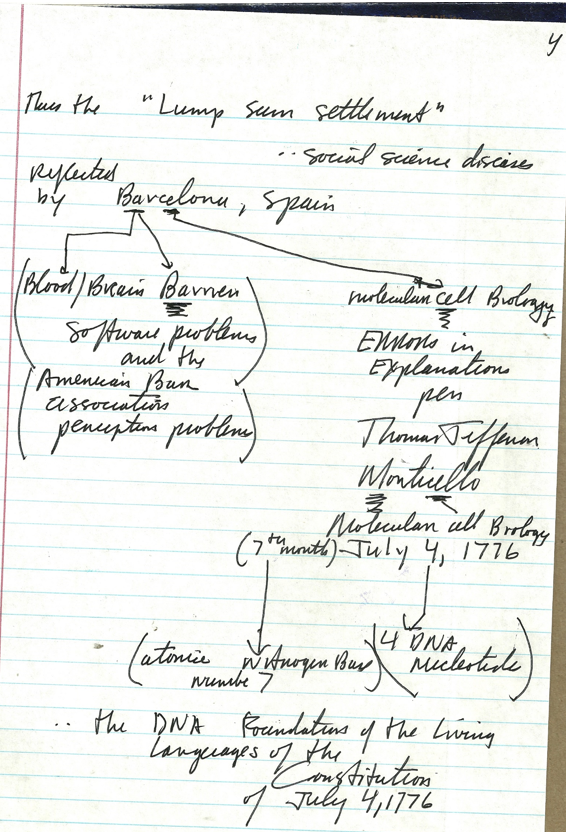 4
Thus the "Lump sum settlement"
∴ social science diseases
reflected
by Barcelona, Spain
(Blood/Brain Barrier
Software problems
and the
American Bar
association
perception problem)
molecular cell Biology
Errors in
Explanations
per
Thomas Jefferson
Monticello
Molecular cell Biology
(7th month) - July 4, 1776
(atomic Nitrogen Base)
number 7
(4 DNA
nucleotide)
∴ the DNA Foundation of the Living
Languages of the
Constitution
of July 4, 1776